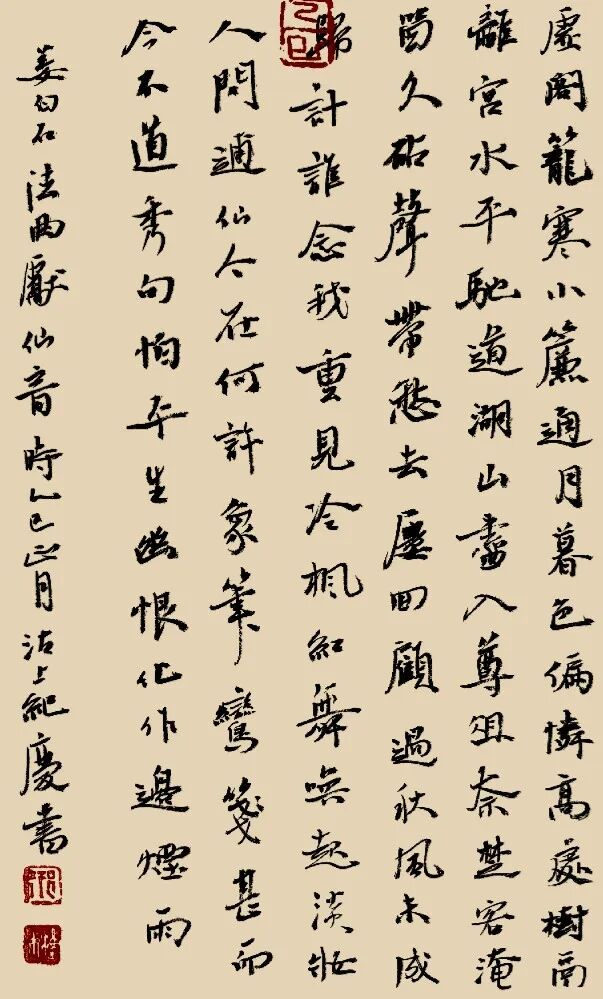 虛閣籠寒小簾通月暮色偏憐高處樹鬲
離宮水平馳道湖山盡入尊俎奈楚客淹
畱久砧聲帶愁去屢回顧過秋風未成
歸計誰念我重見冷楓紅舞喚起淡妝
人問逋仙今在何許象筆鸞箋甚而
今不道秀句怕平生幽恨化作邊煙雨
姜白石法曲獻仙音時乙巳正月沽上紀慶書